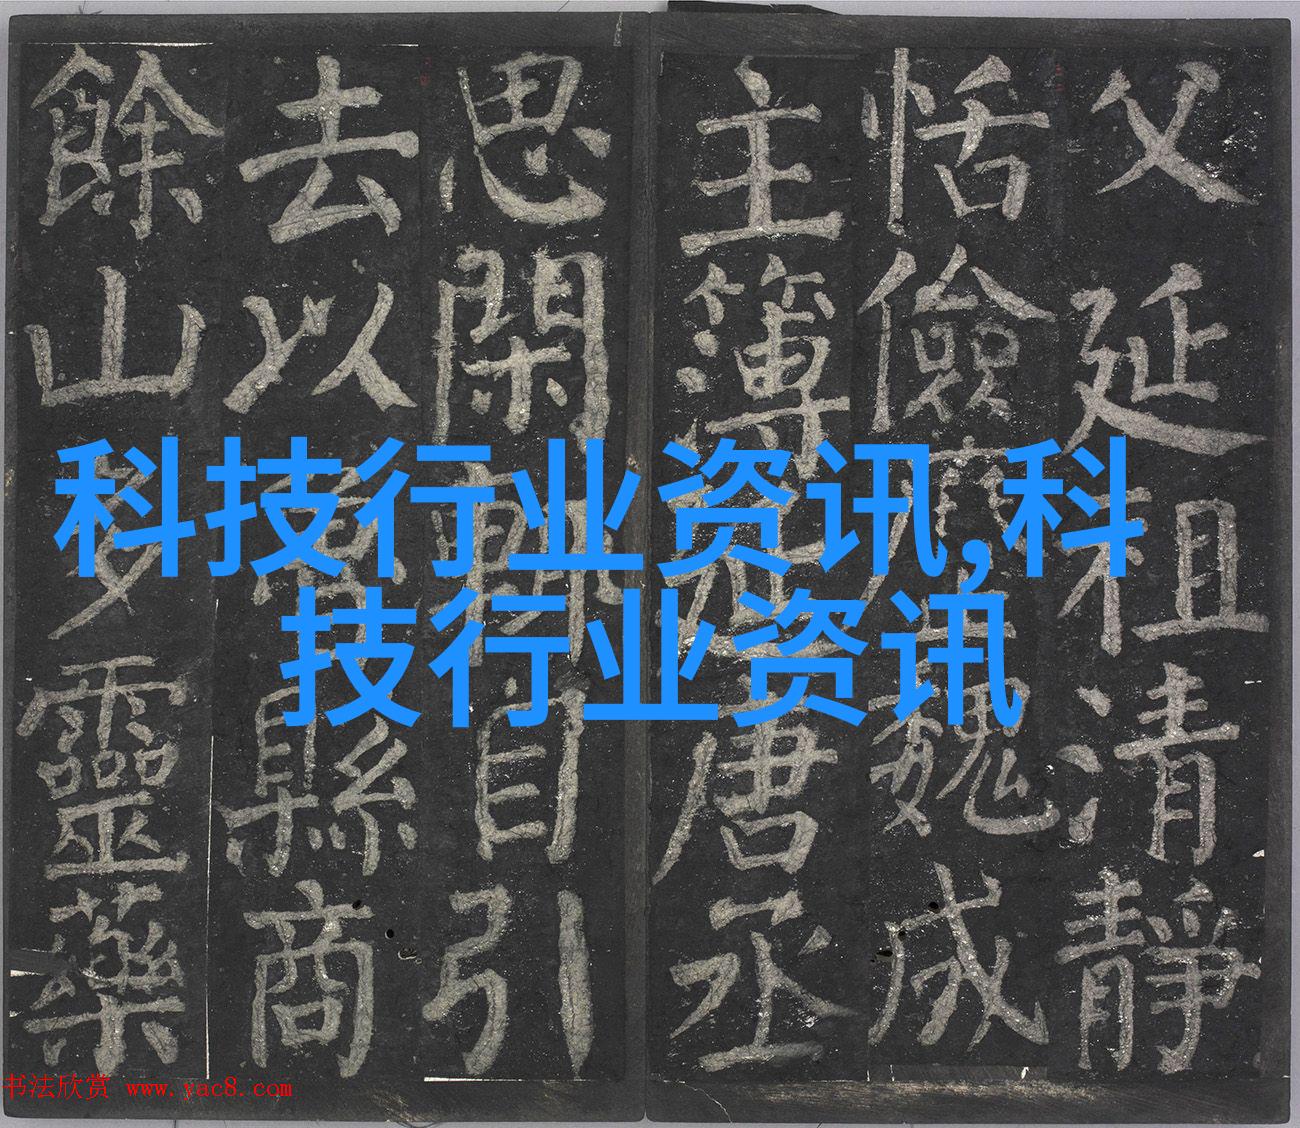 科技行业资讯,科
技行业资讯
父延祖清靜
恬儉魏成
主簿唐丞
思閑自引
去以縣商
餘山多靈藥
书法欣赏 www.yac8.com